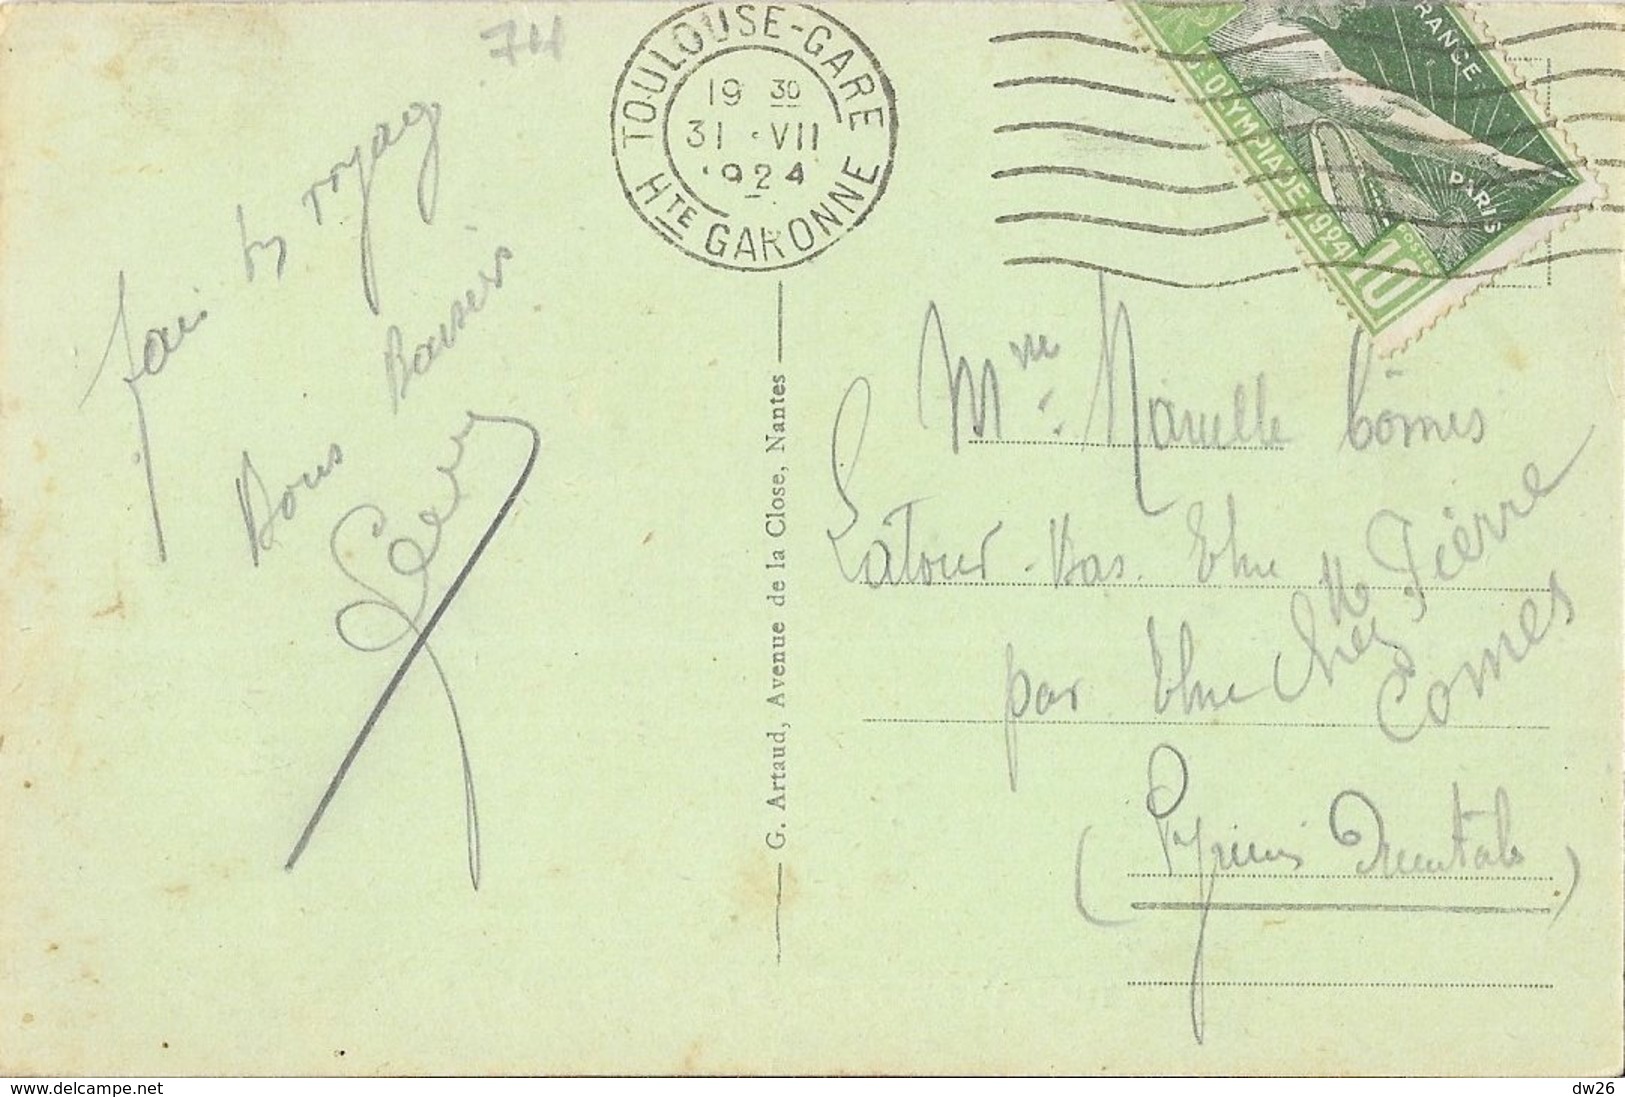 74
TOULOUSE-GARE
19 30
31 · VII
1924
HTE GARONNE
FRANCE
PARIS
8E OLYMPIADE 1924
POSTES
10
Bons Baisers
G. Artaud, Avenue de la Close, Nantes
Mme Marcelle Cômes
Latour-Bas. Elne
par Elne Chez
Mr Pierre
Comes
(Pyrénées Orientales)
www.delcampe.net
dw26